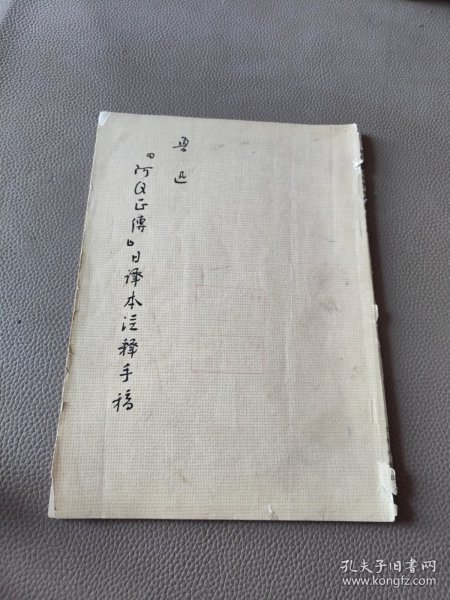 鲁迅
『阿Q正傳』日譯本注释手稿
孔夫子旧书网
www.kongfz.com